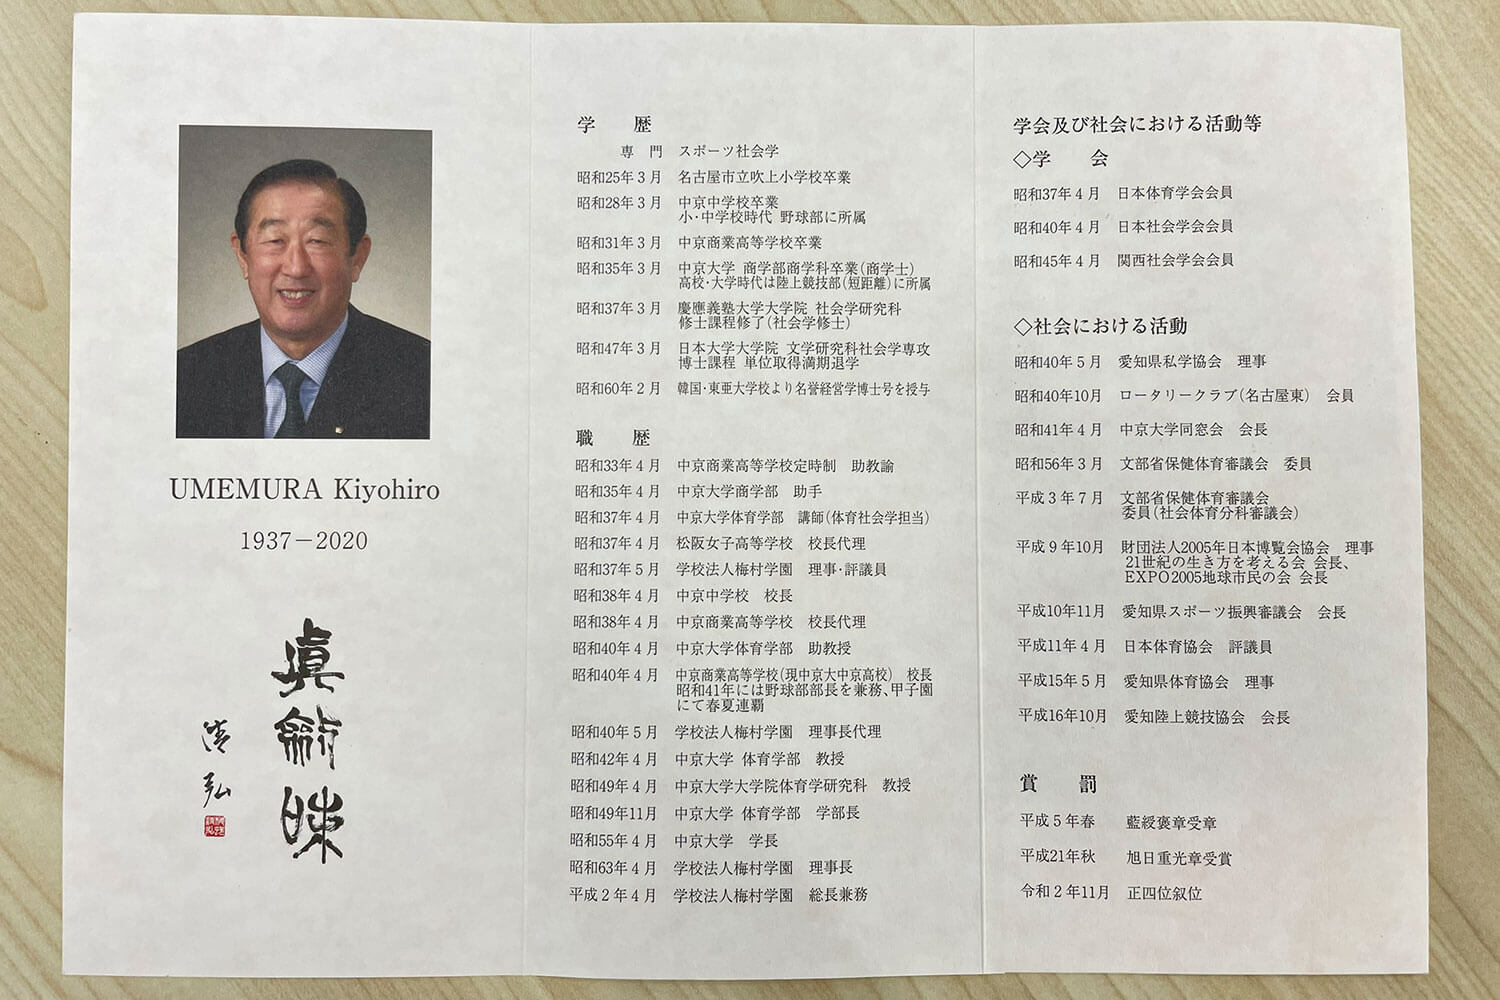 UMEMURA Kiyohiro
1937−2020
清弘
学　歴
専　門　スポーツ社会学
昭和25年3月　名古屋市立吹上小学校卒業
昭和28年3月　中京中学校卒業
小・中学校時代 野球部に所属
昭和31年3月　中京商業高等学校卒業
昭和35年3月　中京大学 商学部商学科卒業(商学士)
高校・大学時代は陸上競技部(短距離)に所属
昭和37年3月　慶應義塾大学大学院 社会学研究科
修士課程修了(社会学修士)
昭和47年3月　日本大学大学院 文学研究科社会学専攻
博士課程 単位取得満期退学
昭和60年2月　韓国・東亜大学校より名誉経営学博士号を授与
職　歴
昭和33年4月　中京商業高等学校定時制　助教諭
昭和35年4月　中京大学商学部　助手
昭和37年4月　中京大学体育学部　講師(体育社会学担当)
昭和37年4月　松阪女子高等学校　校長代理
昭和37年5月　学校法人梅村学園　理事・評議員
昭和38年4月　中京中学校　校長
昭和38年4月　中京商業高等学校　校長代理
昭和40年4月　中京大学体育学部　助教授
昭和40年4月　中京商業高等学校(現中京大中京高校)　校長
昭和41年には野球部部長を兼務、甲子園
にて春夏連覇
昭和40年5月　学校法人梅村学園　理事長代理
昭和42年4月　中京大学 体育学部　教授
昭和49年4月　中京大学大学院体育学研究科　教授
昭和49年11月　中京大学 体育学部　学部長
昭和55年4月　中京大学　学長
昭和63年4月　学校法人梅村学園　理事長
平成2年4月　学校法人梅村学園　総長兼務
学会及び社会における活動等
◇学　会
昭和37年4月　日本体育学会会員
昭和40年4月　日本社会学会会員
昭和45年4月　関西社会学会会員
◇社会における活動
昭和40年5月　愛知県私学協会　理事
昭和40年10月　ロータリークラブ(名古屋東)　会員
昭和41年4月　中京大学同窓会　会長
昭和56年3月　文部省保健体育審議会　委員
平成3年7月　文部省保健体育審議会
委員(社会体育分科審議会)
平成9年10月　財団法人2005年日本博覧会協会　理事
21世紀の生き方を考える会 会長、
EXPO2005地球市民の会 会長
平成10年11月　愛知県スポーツ振興審議会　会長
平成11年4月　日本体育協会　評議員
平成15年5月　愛知県体育協会　理事
平成16年10月　愛知陸上競技協会　会長
賞　罰
平成5年春　藍綬褒章受章
平成21年秋　旭日重光章受賞
令和2年11月　正四位叙位